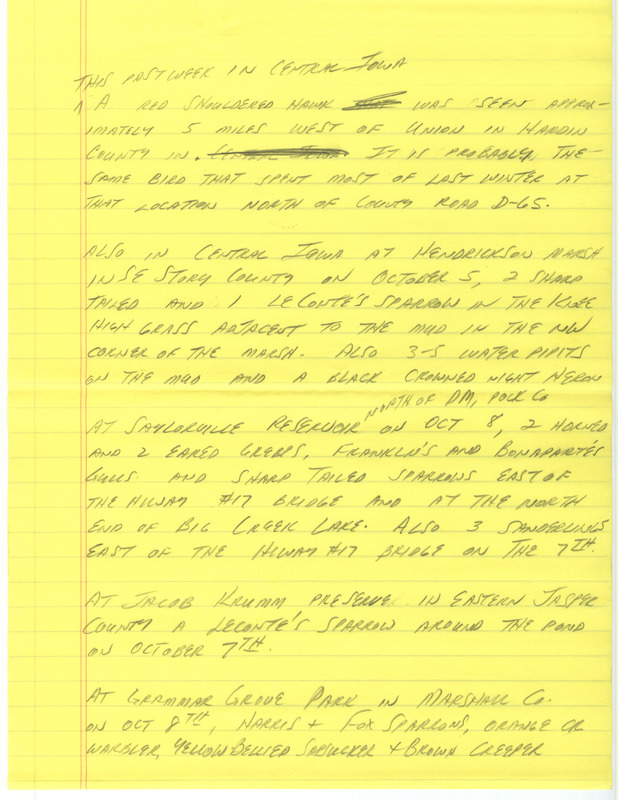 THIS PAST WEEK IN CENTRAL IOWA
^ A RED SHOULDERED HAWK WAS SEEN APPROX-
IMATELY 5 MILES WEST OF UNION IN HARDIN
COUNTY IN . CENTRAL IOWA. IT IS PROBABLY THE
SAME BIRD THAT SPENT MOST OF LAST WINTER AT
THAT LOCATION NORTH OF COUNTY ROAD D-65.
ALSO IN CENTRAL IOWA AT HENDRICKSON MARSH
IN SE STORY COUNTY ON OCTOBER 5, 2 SHARP
TAILED AND 1 LECONTE'S SPARROW IN THE KNEE
HIGH GRASS ADJACENT TO THE MUD IN THE NW
CORNER OF THE MARSH. ALSO 3-5 WATER PIPITS
ON THE MUD AND A BLACK CROWNED NIGHT HERON
NORTH OF DM, POLK CO
AT SAYLORVILLE RESERVOIR ON OCT 8, 2 HORNED
AND 2 EARED GREBES, FRANKLIN'S AND BONAPARTE'S
GULLS AND SHARP TAILED SPARROWS EAST OF
THE HIWAY #17 BRIDGE AND AT THE NORTH
END OF BIG CREEK LAKE. ALSO 3 SANDERLINGS
EAST OF THE HIWAY #17 BRIDGE ON THE 7TH.
AT JACOB KRUMM PRESERVE IN EASTERN JASPER
COUNTY A LECONTE'S SPARROW AROUND THE POND
ON OCTOBER 7TH.
AT GRAMMAR GROVE PARK IN MARSHALL CO.
ON OCT 8TH, HARRIS + FOX SPARROWS, ORANGE CR
WARBLER, YELLOW BELLIED SAPSUCKER + BROWN CREEPER